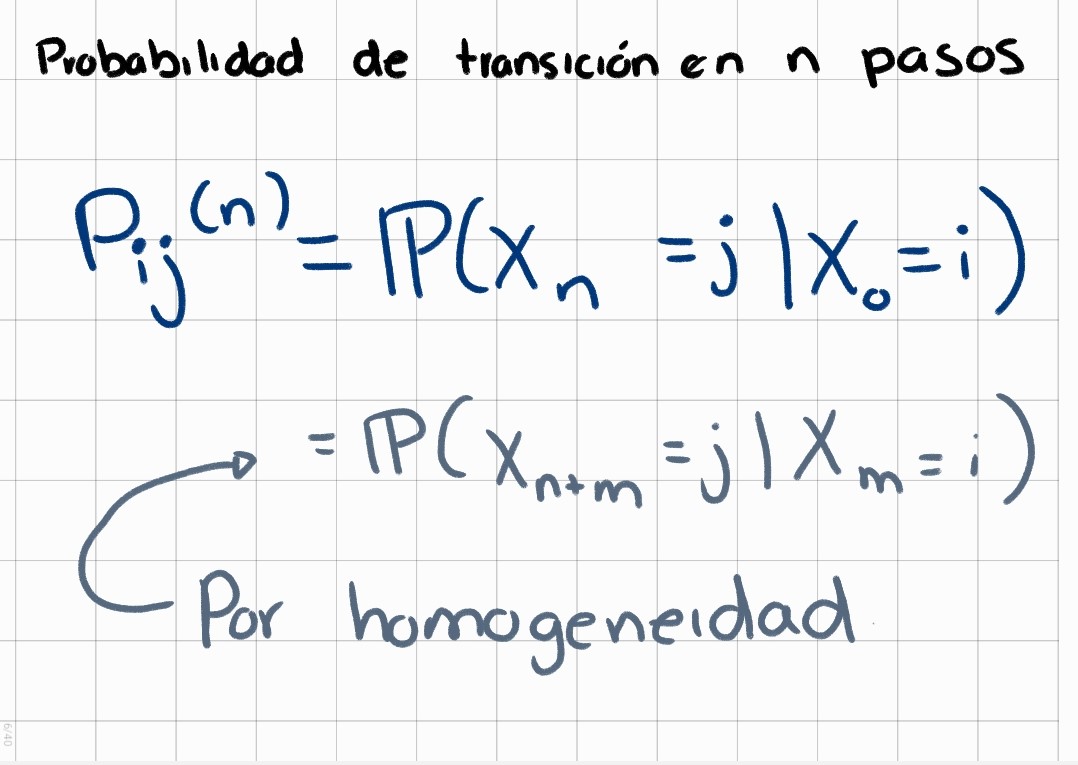 Probabilidad de transición en n pasos
P_{ij}^{(n)} = ℙ(X_n = j | X_0 = i)
= ℙ(X_{n+m} = j | X_m = i)
Por homogeneidad
6/40